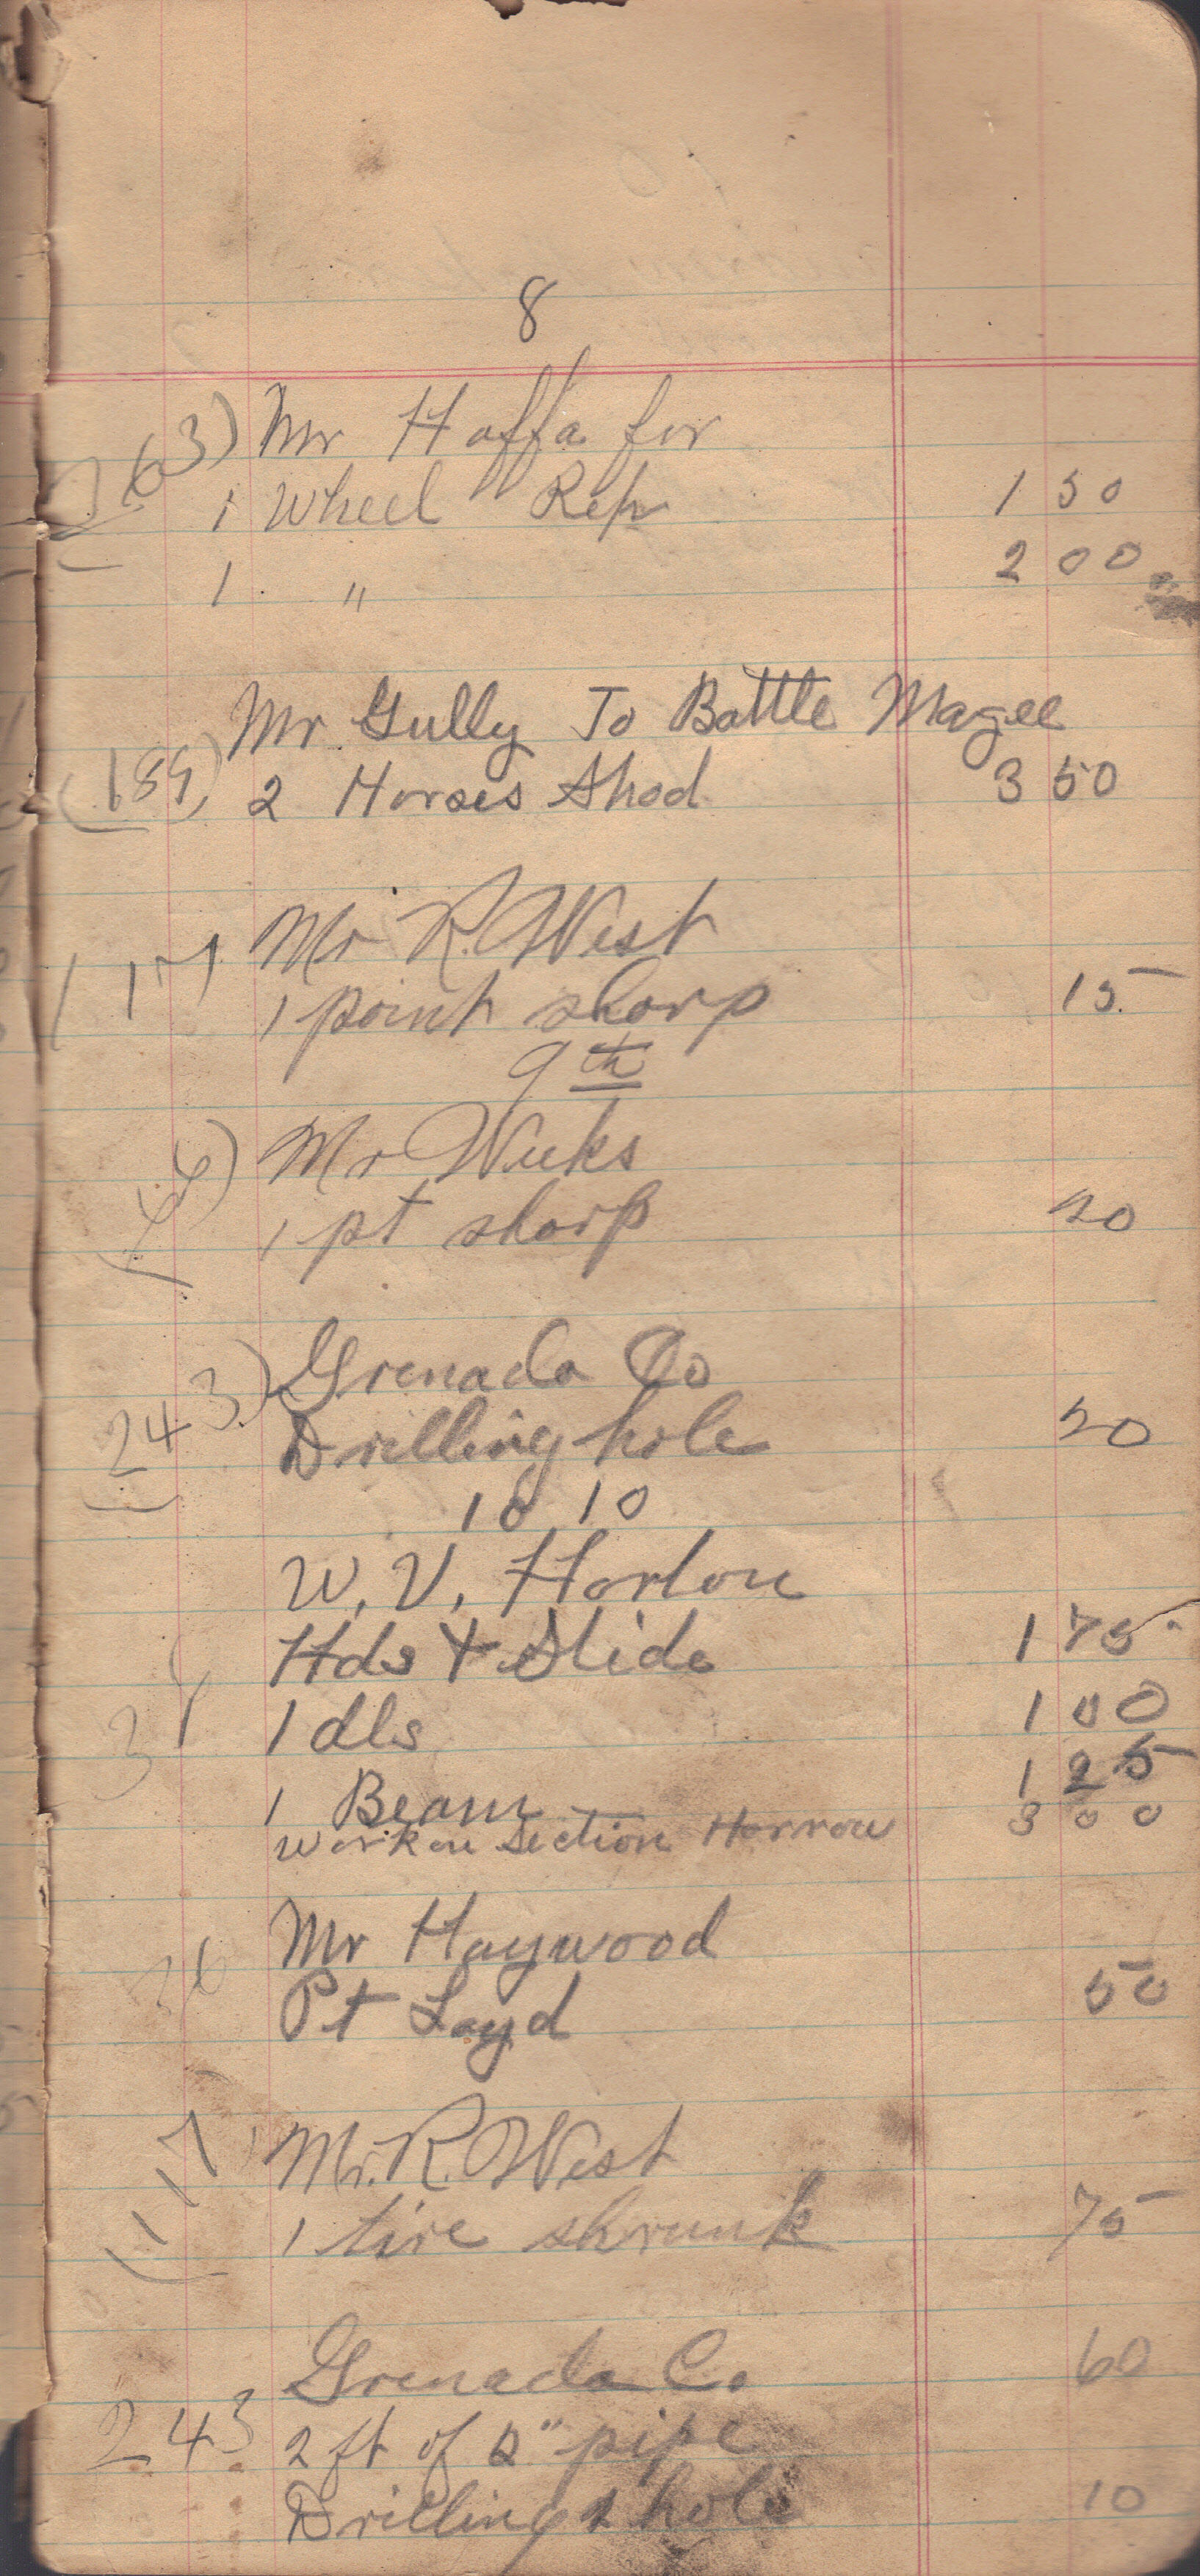 8
263) Mr Haffa for
1 Wheel Rep 1 50
1 " 2 00
Mr Gully To Battle Magee
(189) 2 Horses Shod 3 50
Mr R. West
117 1 point sharp 15
9th
Mr Weeks
1 pt sharp 20
Grenada Co
243) Drilling hole 20
10 10
W. V. Horton
Hds + Slide 1 75
1 dls 1 00
1 Beam 1 25
Work on Section Harrow 3 00
36 Mr Haywood
Pt Layd 50
(117 Mr. R. West
1 tire shrunk 75
Grenada Co 60
243 2 ft of 2" pipe
Drilling 2 hole 10